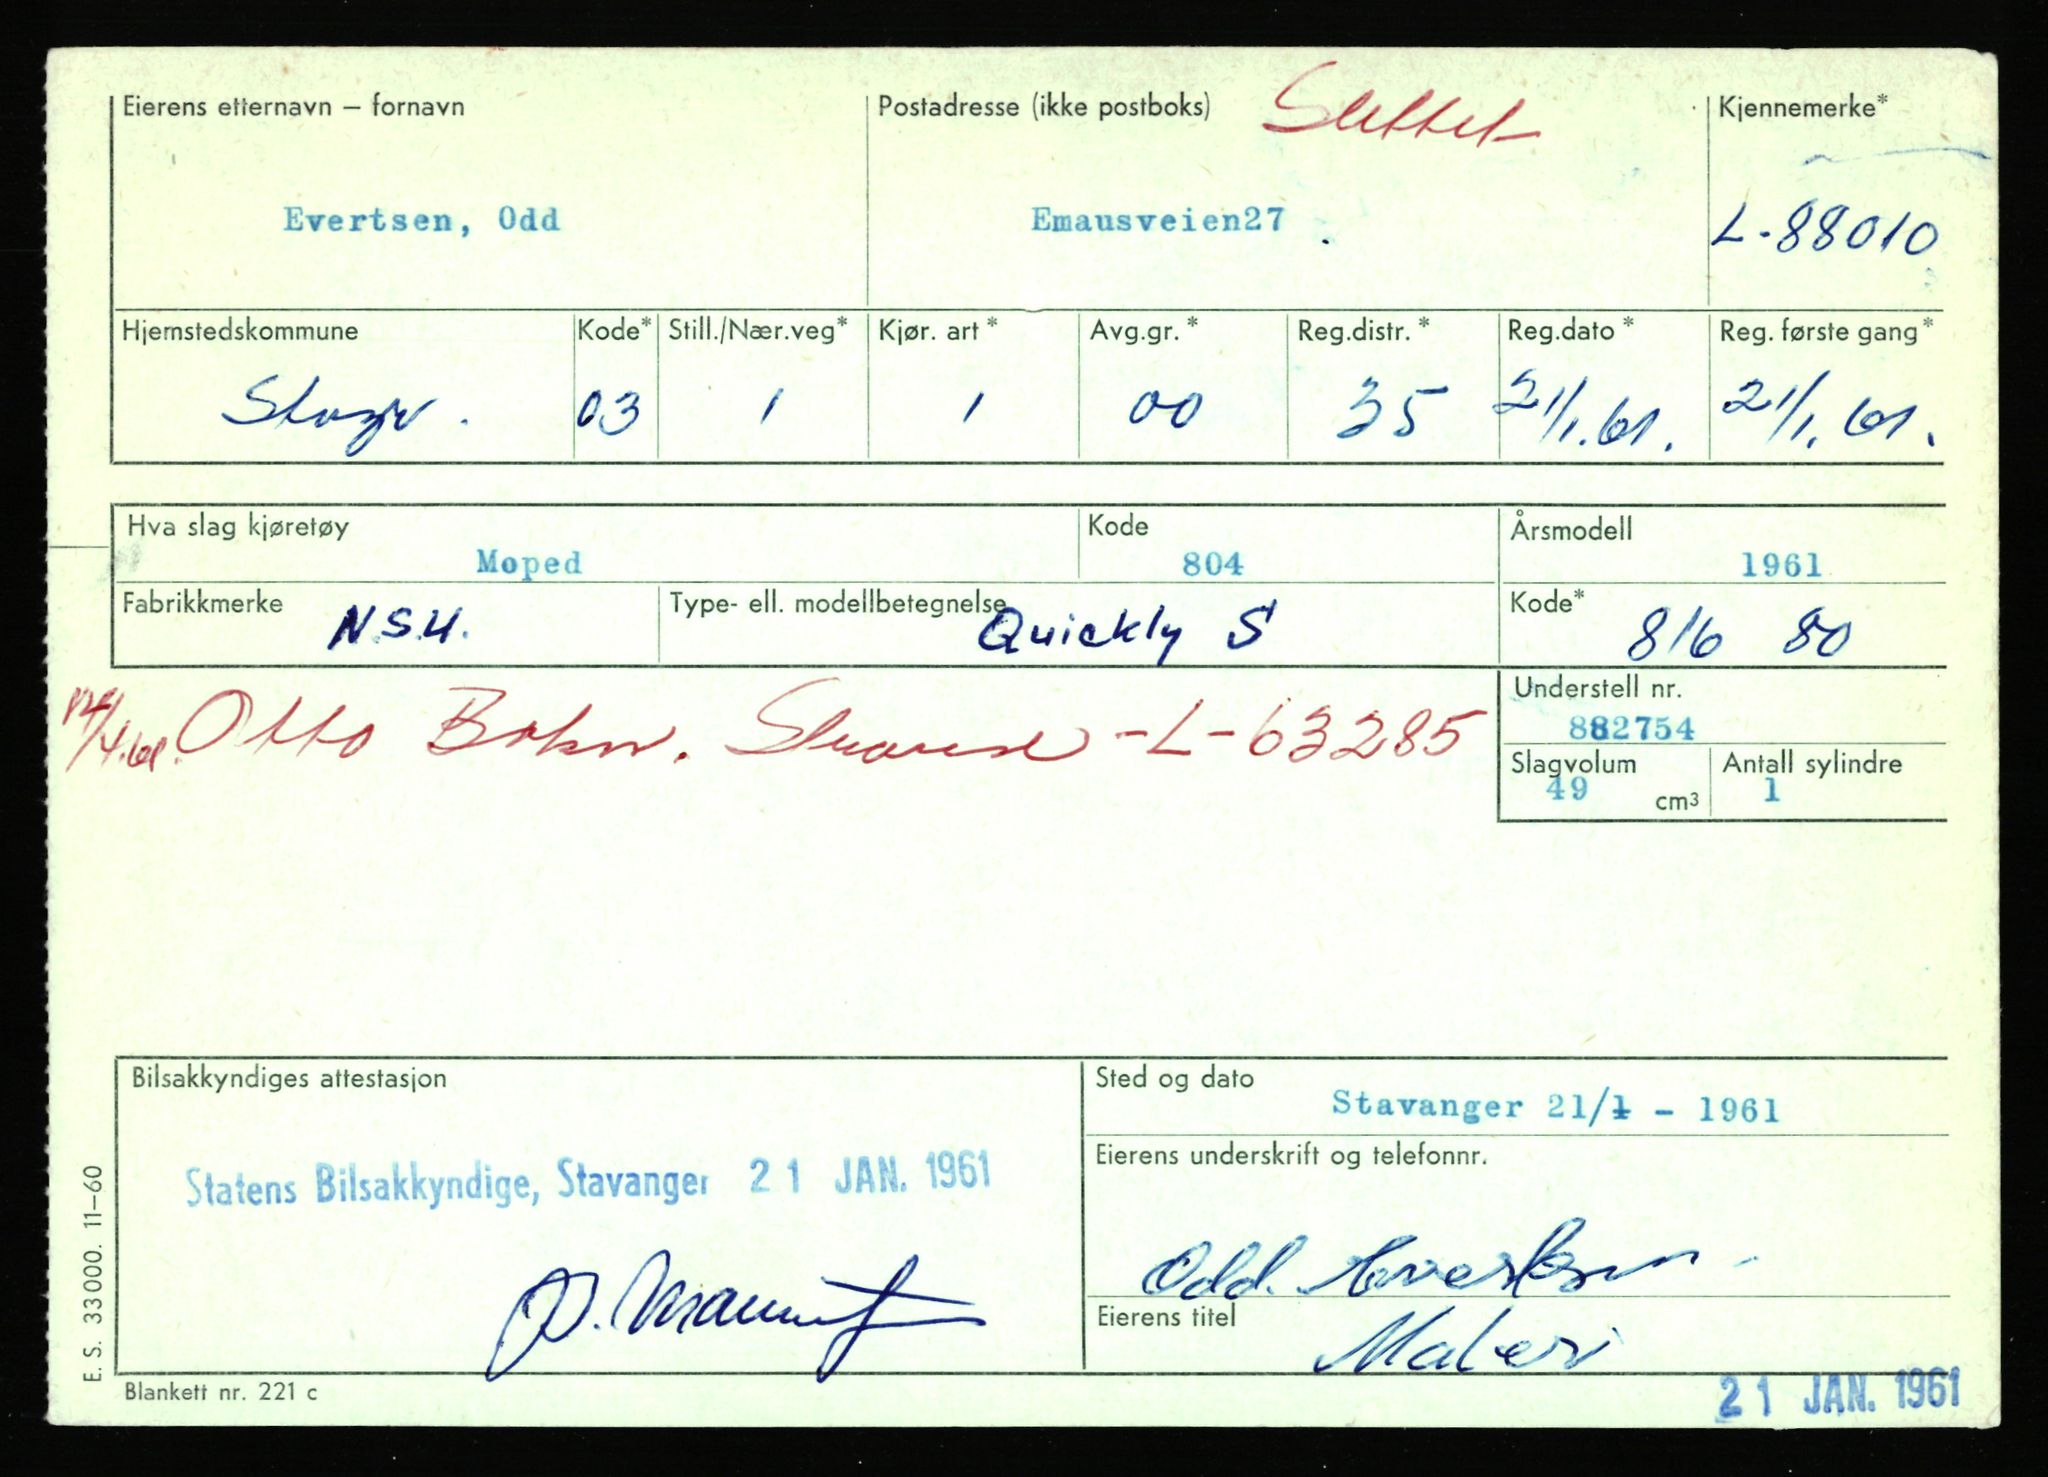 Eierens etternavn – fornavn
Postadresse (ikke postboks)
Slettet
Kjennemerke*
Evertsen, Odd
Emausveien27
L-88010
Hjemstedskommune
Kode*
Still./Nær.veg*
Kjør. art*
Avg.gr.*
Reg.distr.*
Reg.dato*
Reg. første gang*
03
1
1
00
35
21/1.61.
21/1.61.
Hva slag kjøretøy
Moped
Kode
804
Årsmodell
1961
Fabrikkmerke
N.S.U.
Type- ell. modellbetegnelse
Quickly S
Kode*
816 80
Otto L-63285
Understell nr.
882754
Slagvolum
49 cm³
Antall sylindre
1
Bilsakkyndiges attestasjon
Statens Bilsakkyndige, Stavanger 21 JAN. 1961
Sted og dato
Stavanger 21/1 - 1961
Eierens underskrift og telefonnr.
Odd. Evertsen
Eierens titel
Maler
E. S. 33000. 11–60
Blankett nr. 221 c
21 JAN. 1961